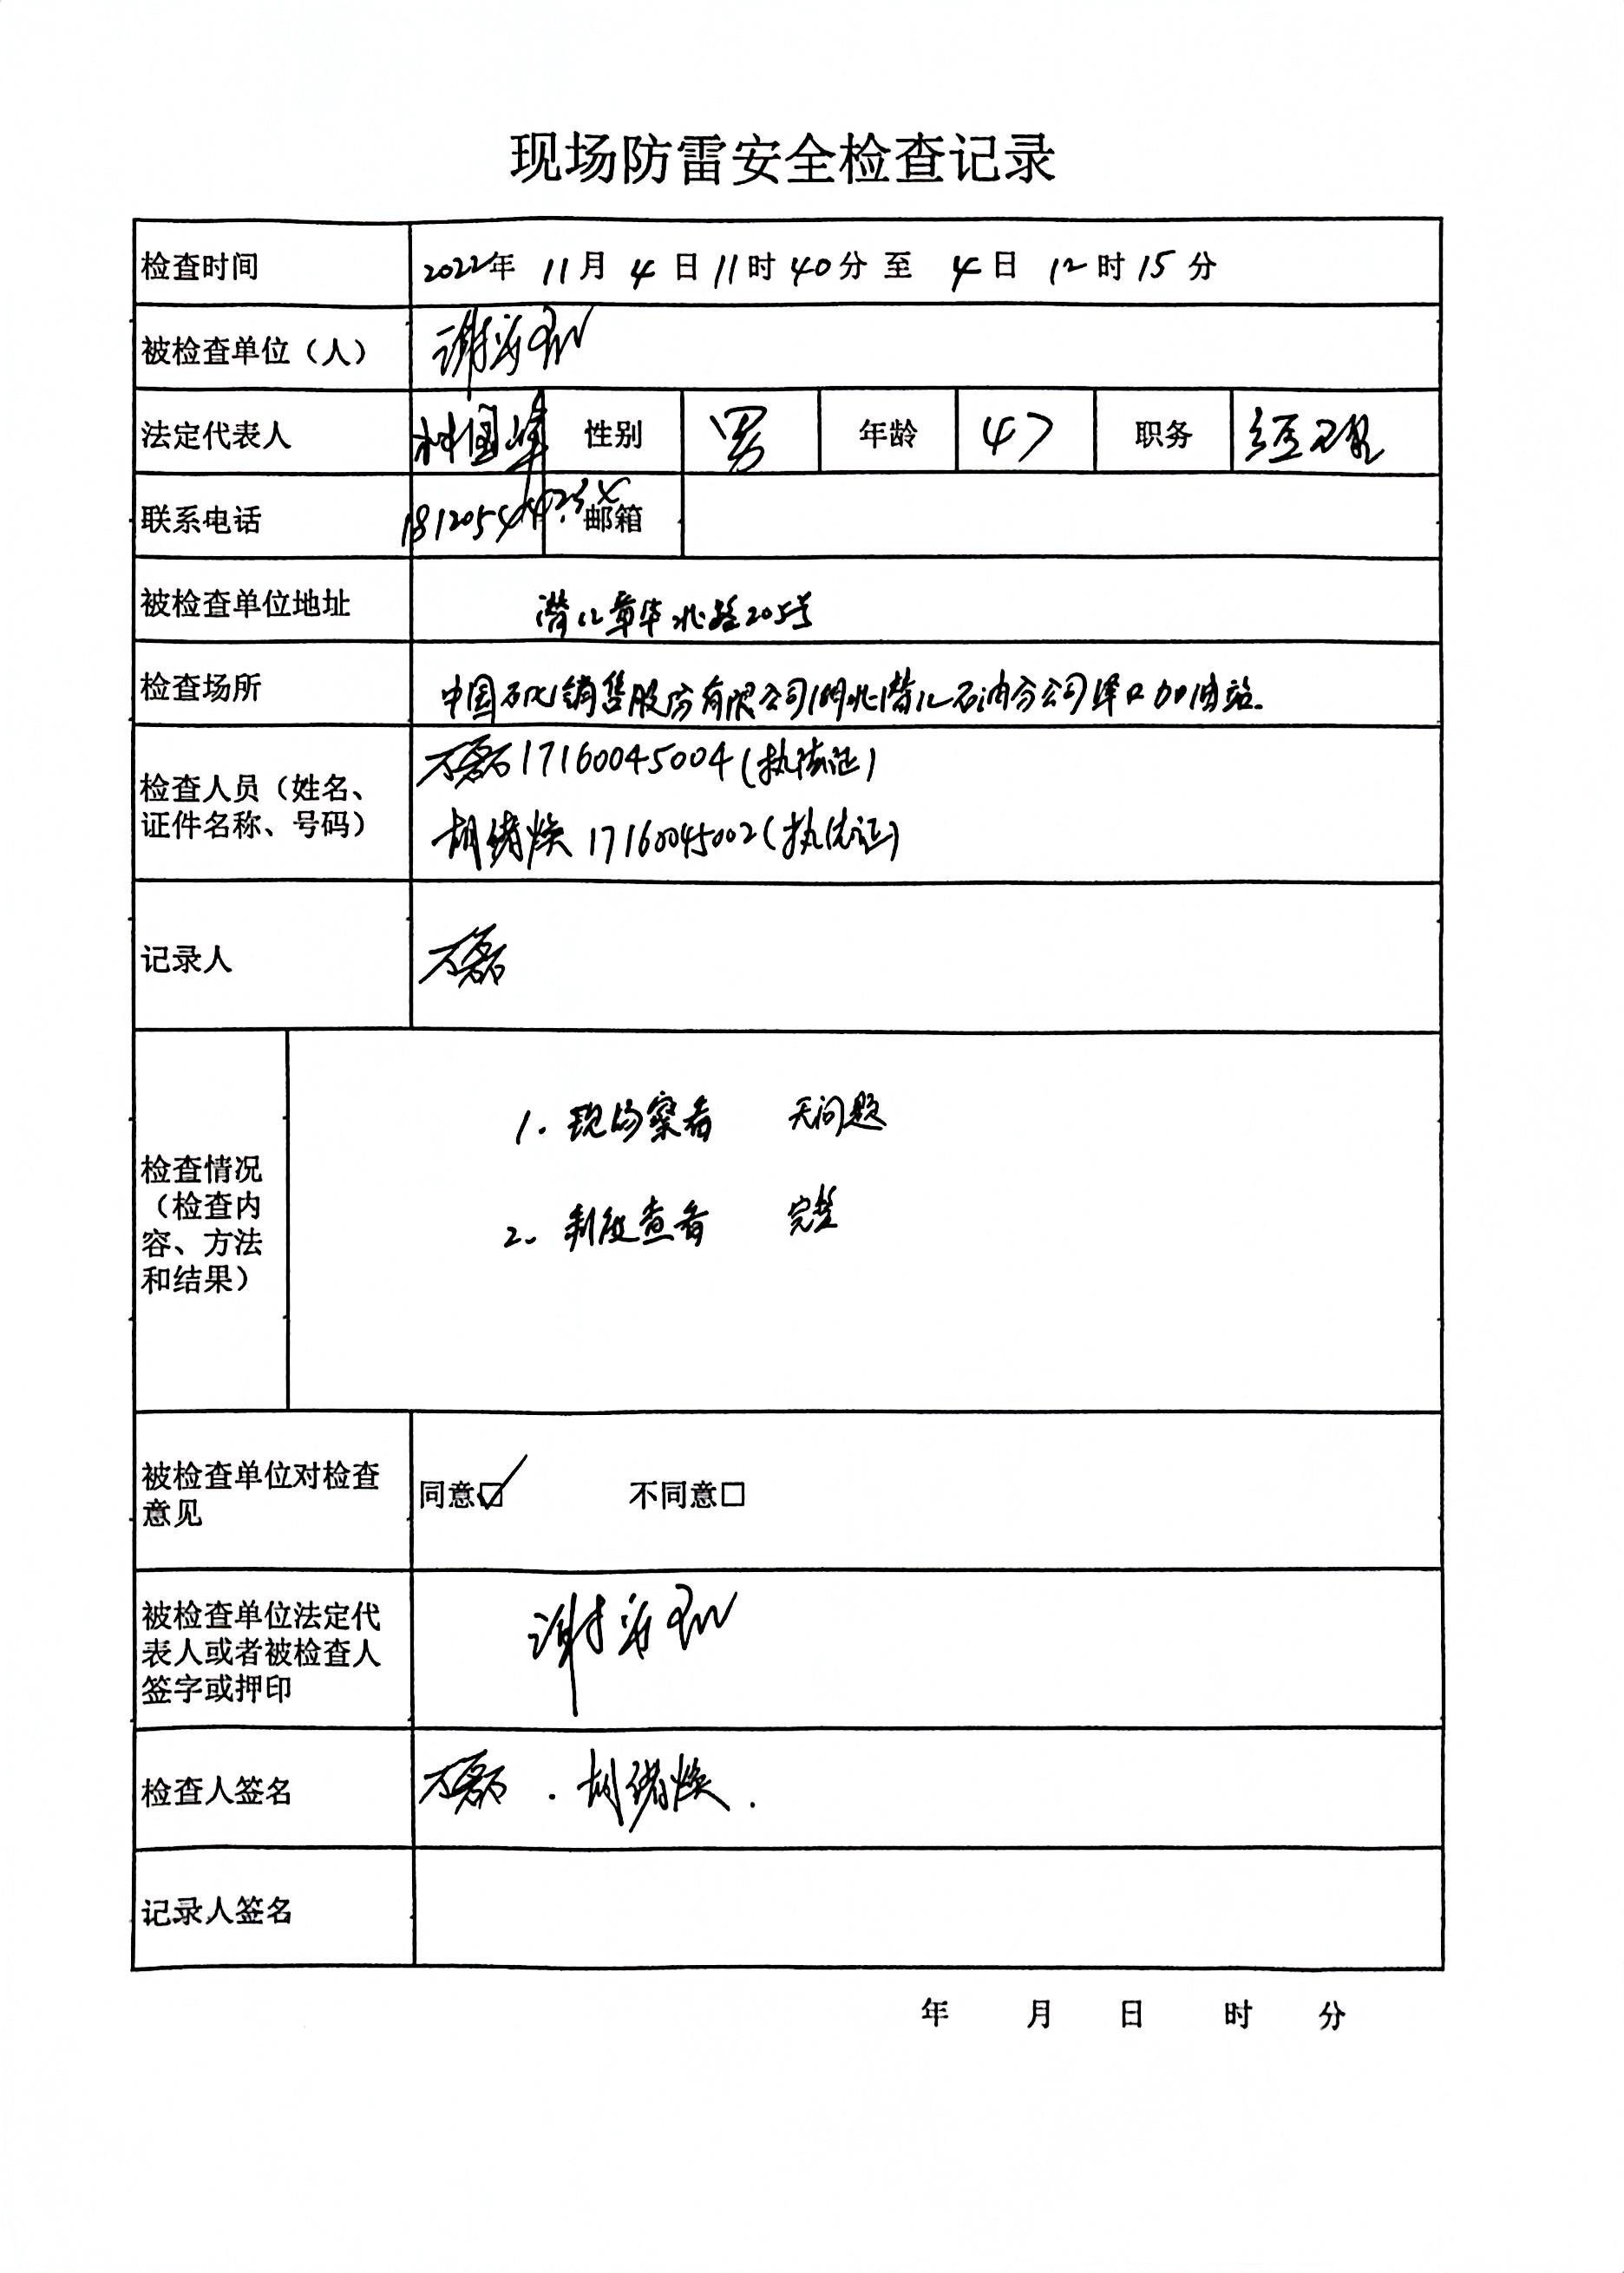 现场防雷安全检查记录
检查时间 2022年 11月 4日 11时 40分 至 4日 12时 15分
被检查单位（人） 谢
法定代表人 性别 男 年龄 47 职务 经理
联系电话 邮箱
被检查单位地址 潜江章华北路205号
检查场所 中国石化销售股份有限公司湖北潜江石油分公司泽口加油站.
检查人员（姓名、
证件名称、号码）
万磊17160045004(执法证)
胡绪焕 17160045002(执法证)
记录人 万磊
检查情况
（检查内
容、方法
和结果）
1. 现场察看 无问题
2. 制度查看 完整
被检查单位对检查
意见
同意☑ 不同意□
被检查单位法定代
表人或者被检查人
签字或押印
谢
检查人签名 万磊 . 胡绪焕 .
记录人签名
年 月 日 时 分